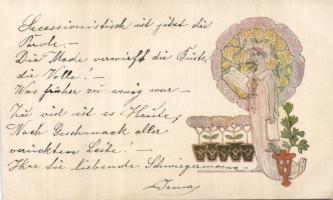 Secessionistisch ist jetzt die
Parole. –
Die Mode verwirft die Büste,
die Volle! –
Was früher zu wenig war –
Zu viel ist es Heute;
Nach Geschmack aller
verrückten Leite! –
Ihre Sie liebende Schwiegermama
Irma